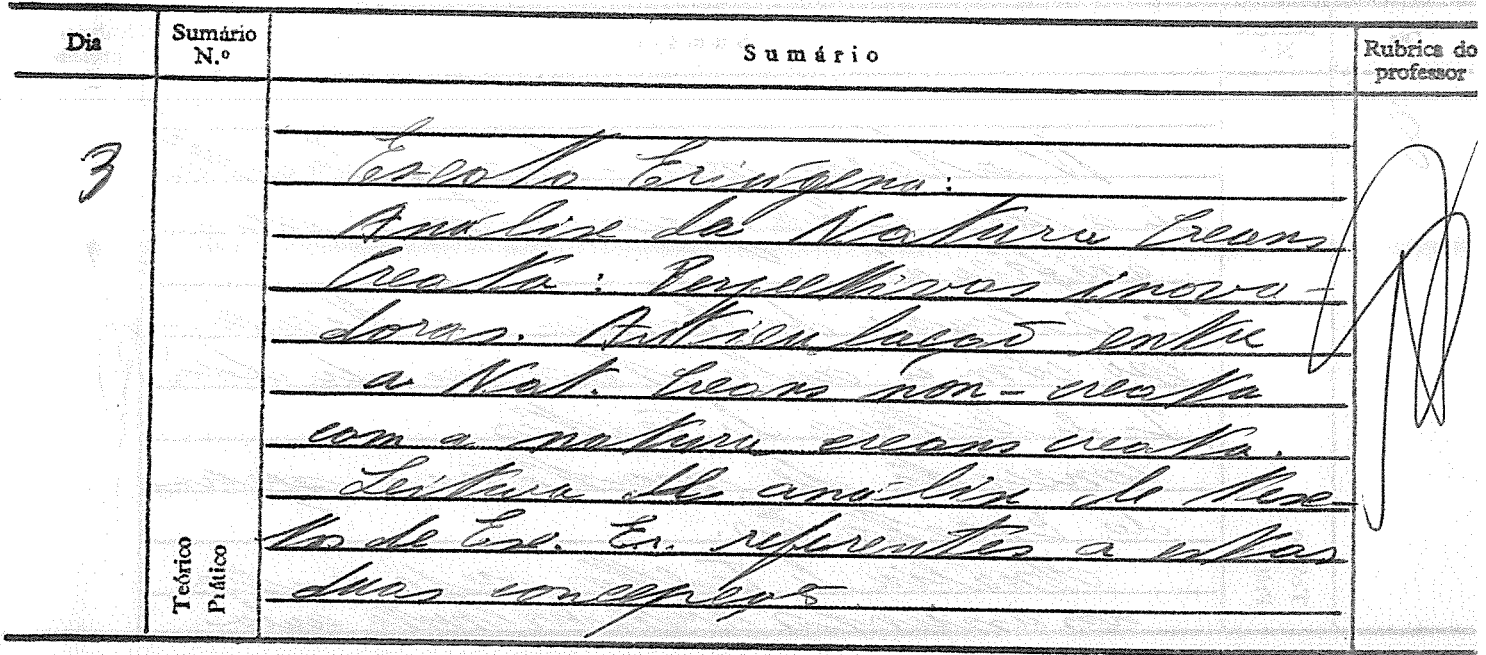 Dia
Sumário N.º
Sumário
Rubrica do professor
3
Escoto Eriúgena:
Análise da Natura Creans
Creata: Perspectivas inova-
doras. Articulação entre
a Nat. Creans non-creata
com a natura creans creata.
Leitura de análise de tex-
tos de Esc. Er. referentes a estas
duas concepções
Teórico
Prático